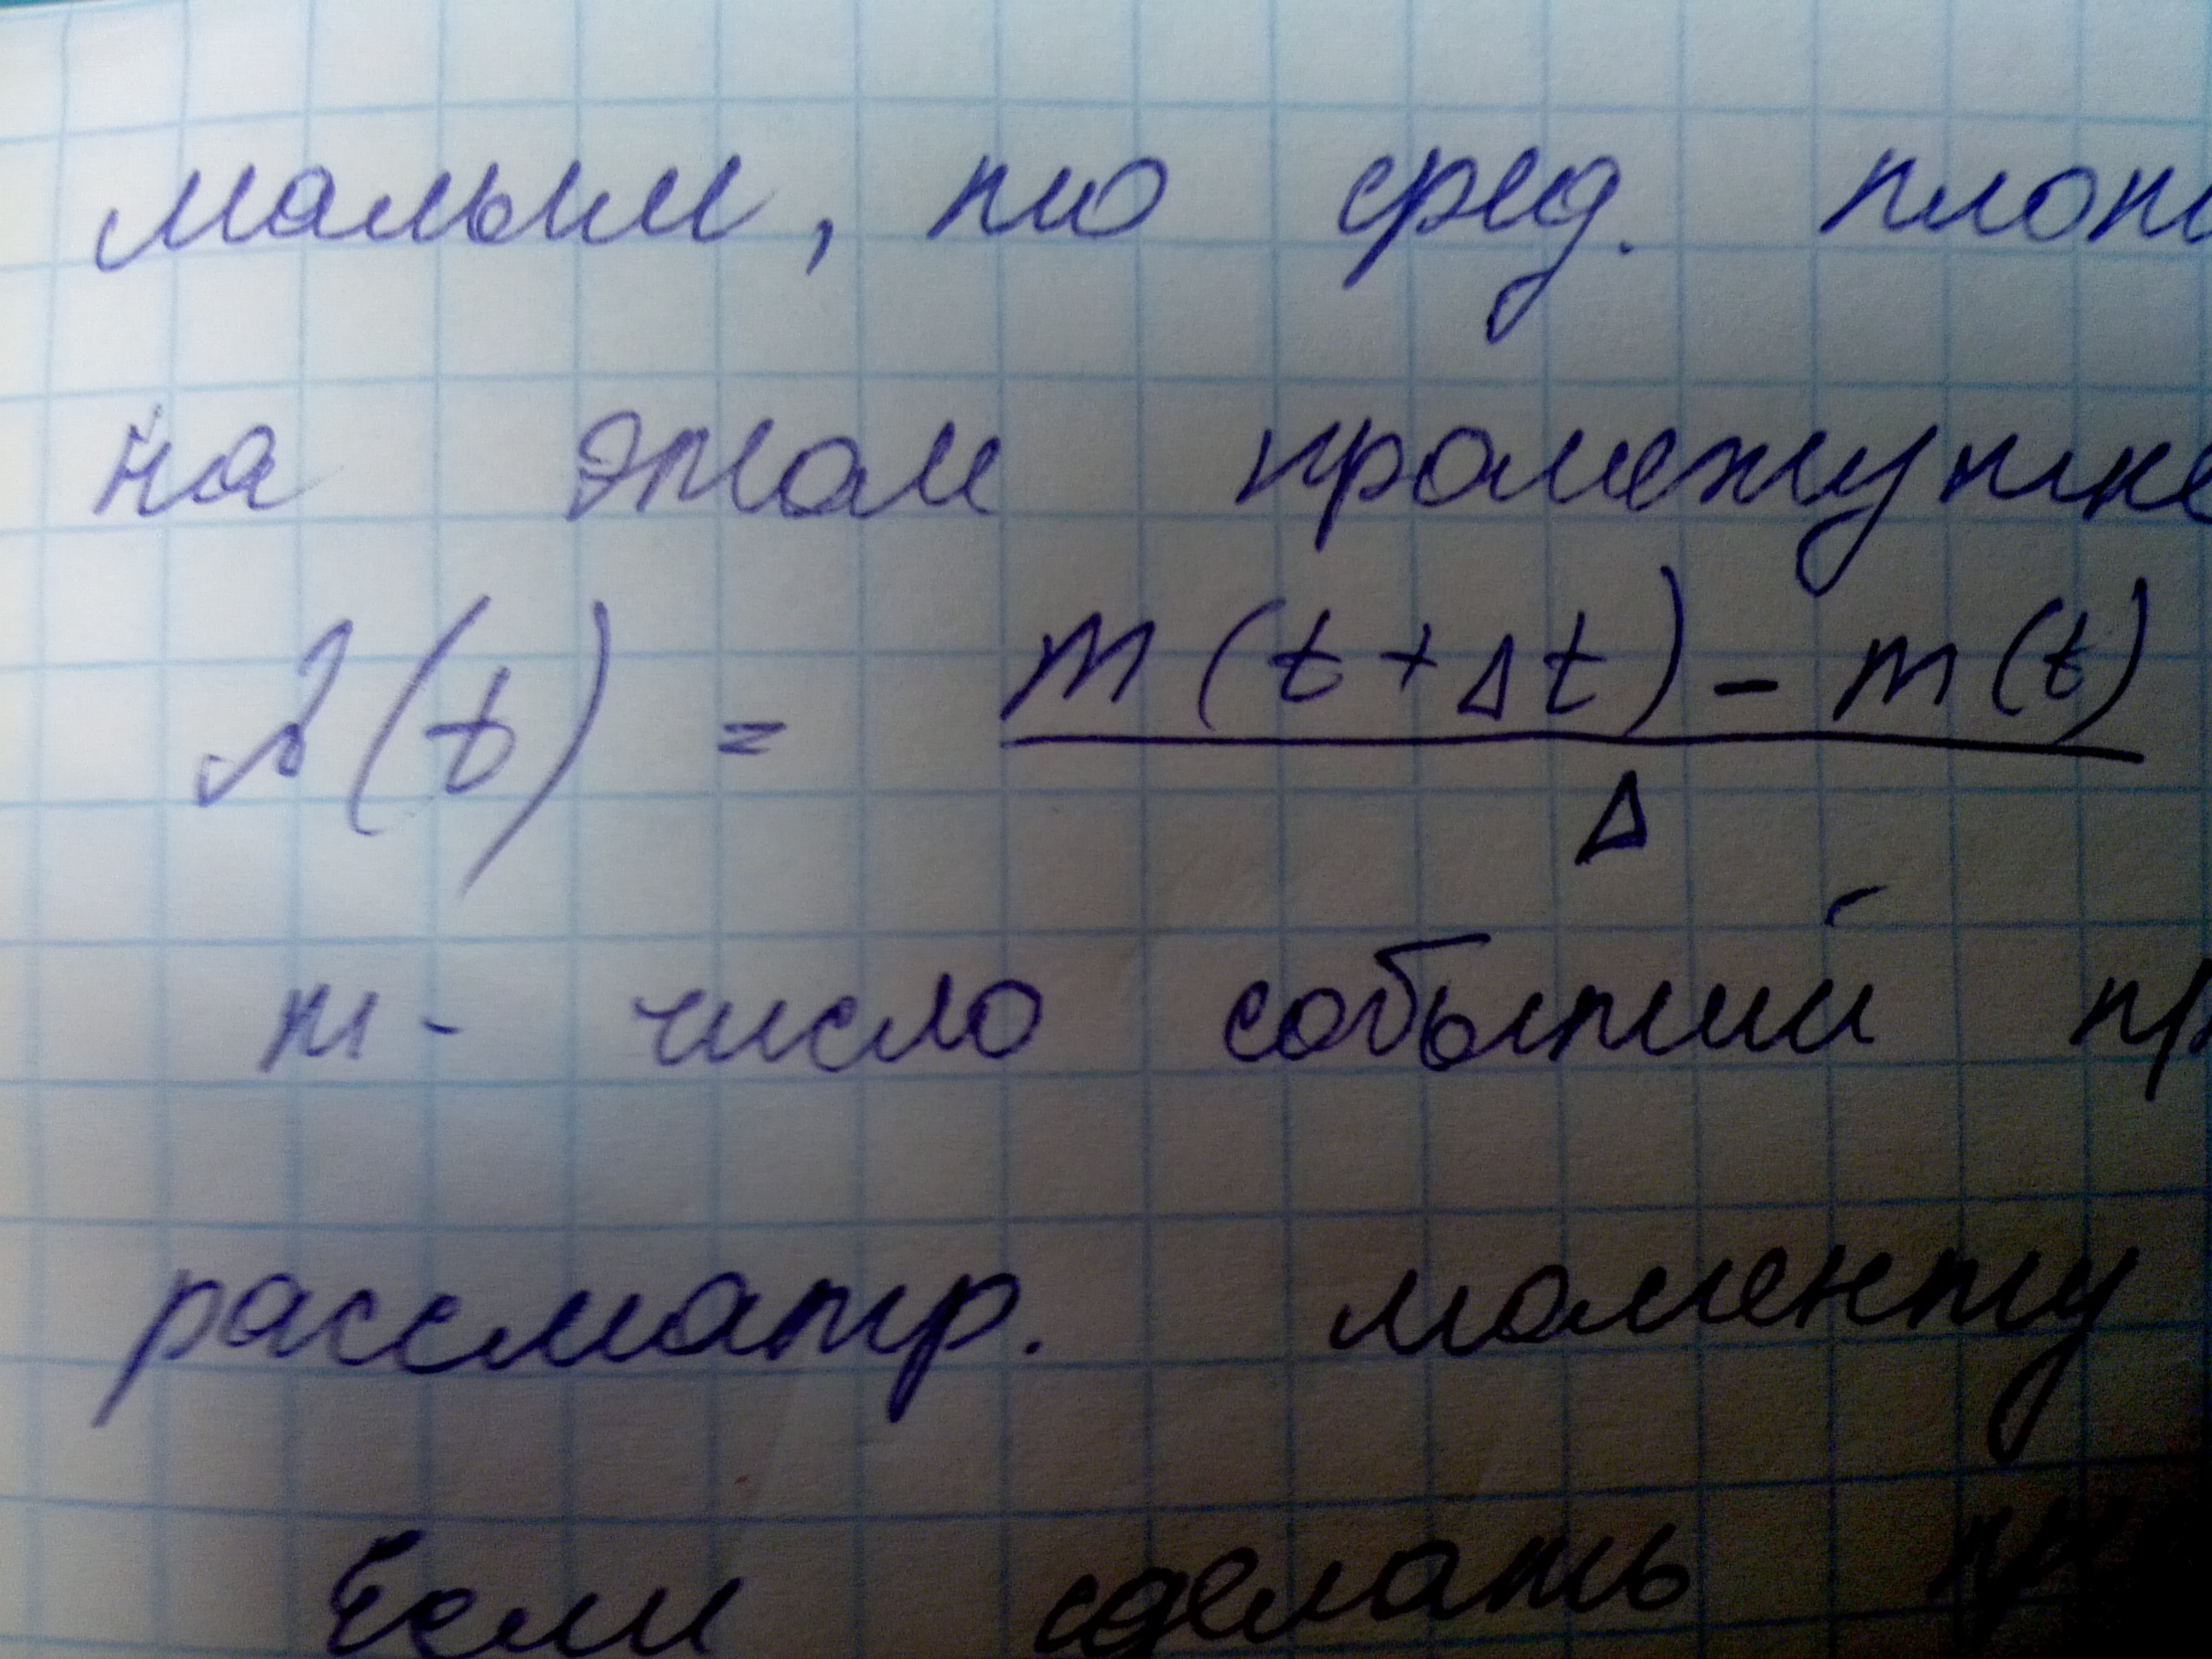 малым, то сред. плот
на этом промежутке
λ(t) = m(t+Δt) - m(t) / Δ
m - число событий
рассматр. моменту
Если сделать